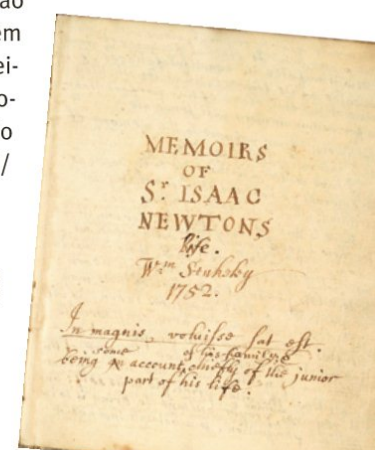 ão
em
ei-
o-
o
/
MEMOIRS
OF
Sr. ISAAC
NEWTONS
life.
Wm Stukeley
1752.
In magnis, voluisse sat est.
some of his family &
being an account chiefly of the junior
part of his life.